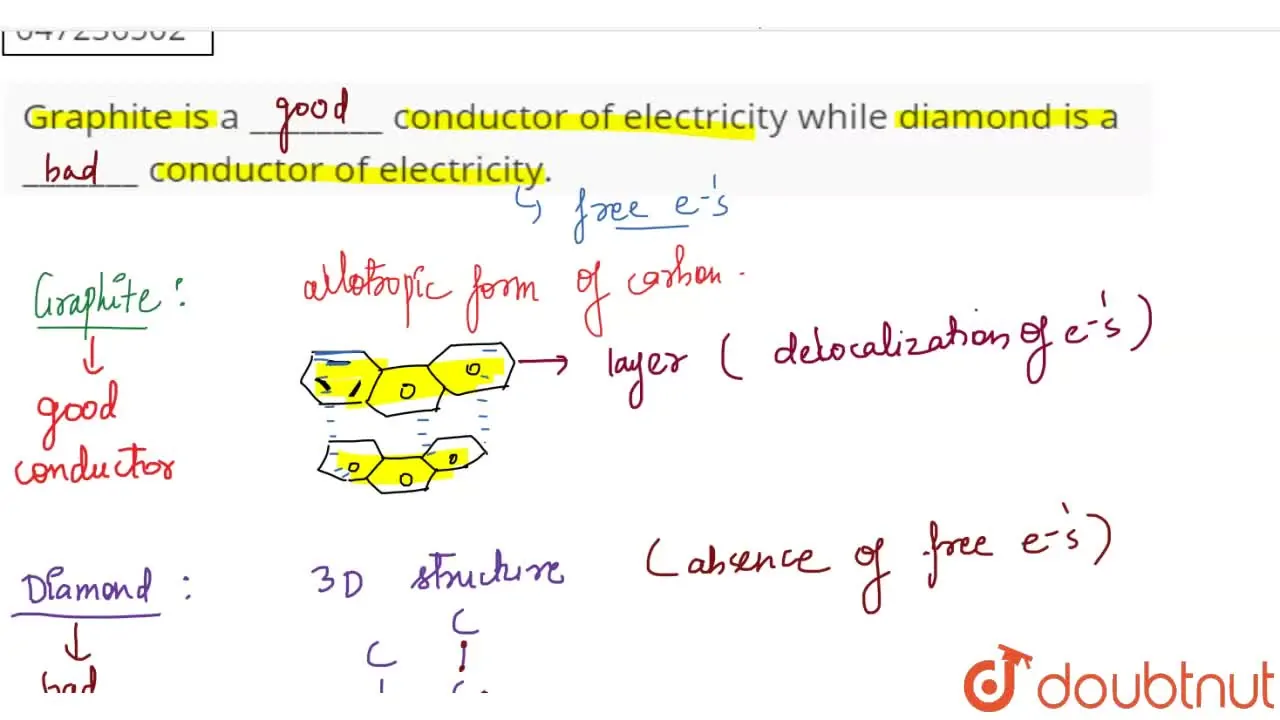 Graphite is a good conductor of electricity while diamond is a
bad conductor of electricity.
↳ free e-'s
Graphite :
allotropic form of carbon.
layer (delocalization of e-'s)
good
conductor
Diamond :
3D structure
(absence of free e-'s)
C
C
C
bad
doubtnut